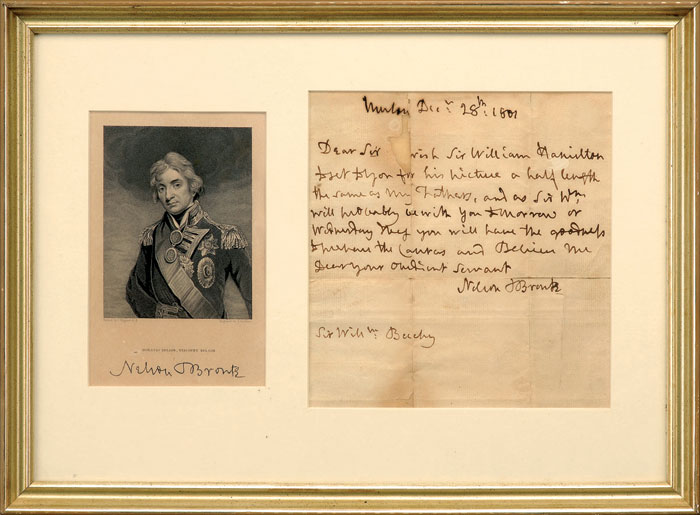 HORATIO NELSON, VISCOUNT NELSON
Nelson & Bronte
Merton Decr. 28th: 1801
Dear Sir wish Sir William Hamilton
to set to you for his picture a half length
the same as my Fathers, and as Sir Wm
will probably be with you tomorrow or
Wednesday I beg you will have the goodness
to prepare the Canvas and Believe me
Dear your Obedient Servant
Nelson & Bronte
Sir Willm. Beechy